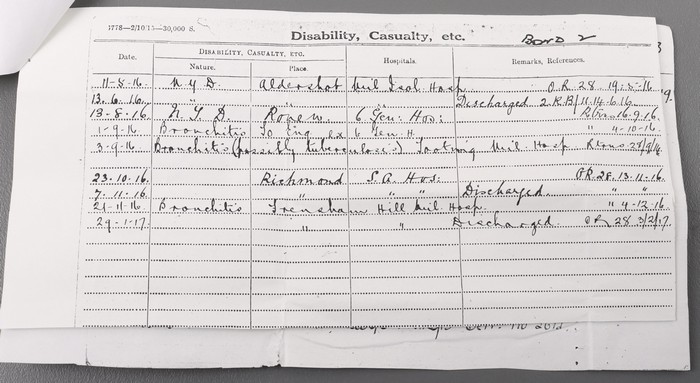 1778—2/10/15—30,000 S.
Disability, Casualty, etc. Bond 2
Disability, Casualty, etc.
Date. Nature. Place. Hospitals. Remarks, References.
11-5-16 N.Y.D. Aldershot Mil Isol Hosp O.R. 28 19-5-16
13.6.16 " " Discharged 2.R.B/11.14.6.16
13-8-16. N.Y.D. Rouen 6 Gen: Hos: Retns 16.9.16.
1-9-16 Bronchitis To Eng ex 6 Gen. H. " 4-10-16
3-9-16 Bronchitis (possibly tuberculosis) Tooting Mil. Hosp Retns 28/9/16
23.10.16. Richmond S.A. Hos: OR. 28. 13-11-16.
7.11.16 " " " Discharged " "
21-11-16 Bronchitis Frensham Hill Mil Hosp. " 4-12-16
29-1-17. " " Discharged OR 28 3/2/17.